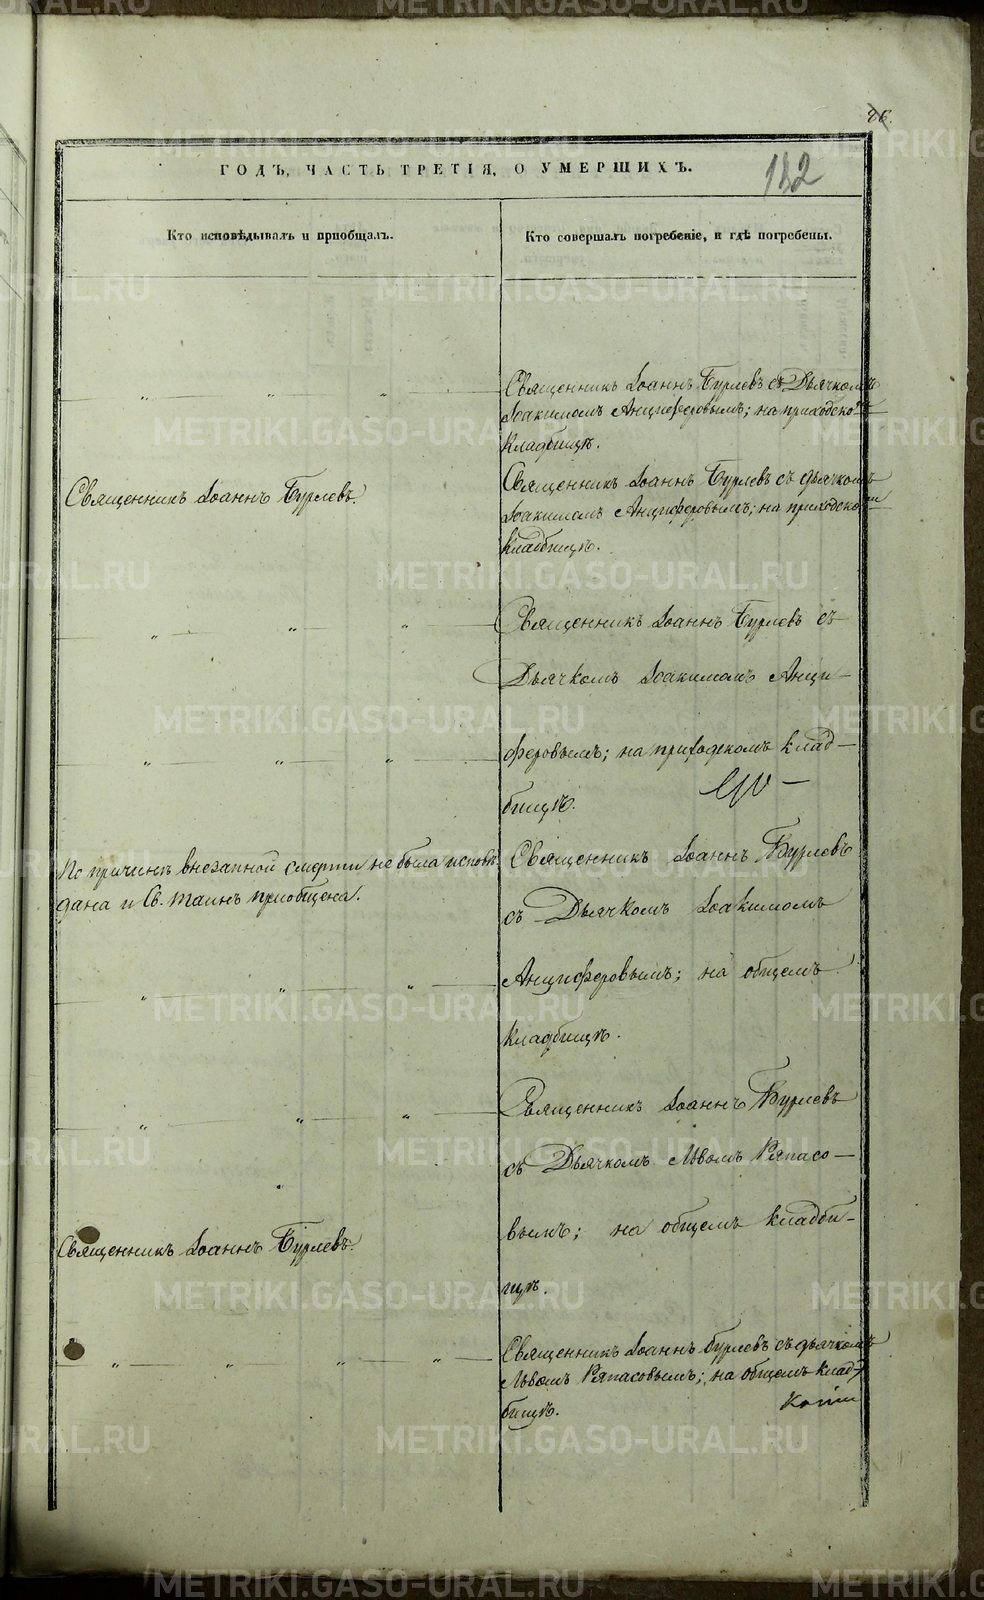 86.
182
ГОДЪ, ЧАСТЬ ТРЕТІЯ, О УМЕРШИХЪ.
Кто исповѣдывалъ и пріобщалъ.
Кто совершалъ погребеніе, и гдѣ погребены.
Священникъ Іоаннъ Бурлевъ съ Дьячкомъ
Іоакимомъ Анциферовымъ; на приходско
кладбищѣ.
Священникъ Іоаннъ Бурлевъ.
Священникъ Іоаннъ Бурлевъ съ дьячкомъ
Іоакимомъ Анциферовымъ; на приходско
кладбищѣ.
Священникъ Іоаннъ Бурлевъ съ
Дьячкомъ Іоакимомъ Анци–
феровымъ; на приходскомъ клад–
бищѣ.
По причинѣ внезапной смерти не была исповѣ
дана и Св. таинъ приобщена.
Священникъ Іоаннъ Бурлевъ
съ Дьячкомъ Іоакимомъ
Анциферовымъ; на общемъ
кладбищѣ.
Священникъ Іоаннъ Бурлевъ
съ Дьячкомъ Львомъ Ряпасо–
вымъ; на общемъ кладби–
щѣ.
Священникъ Іоаннъ Бурлевъ.
Священникъ Іоаннъ Бурлевъ съ дьячкомъ
Львомъ Ряпасовымъ; на общемъ клад–
бищѣ.
METRIKI.GASO-URAL.RU